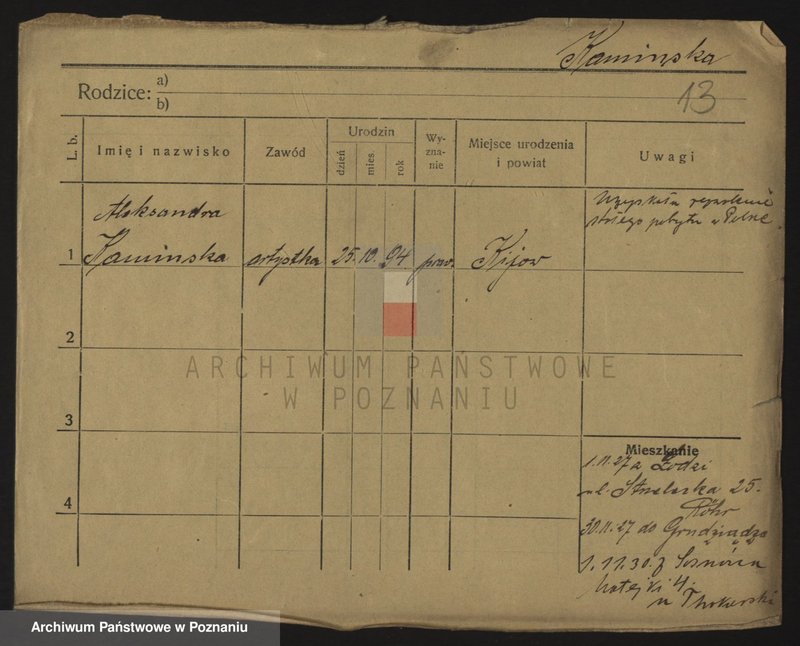 Kaminska
Rodzice: a)
b)
13
L. b.
Imię i nazwisko
Zawód
Urodzin
dzień
mies.
rok
Wy-
zna-
nie
Miejsce urodzenia
i powiat
Uwagi
Aleksandra
pobytu w
1
Kaminska artystka 25. 10. 94 praw. Kijow
2
ARCHIWUM PAŃSTWOWE
W POZNANIU
3
4
Mieszkanie
1.11.27 z Łodzi
ul. Strzelecka 25.
Röhr
30.11.27 do Grudziądza
1.11.30. z Sosnowca
Matejki 4.
u
Archiwum Państwowe w Poznaniu